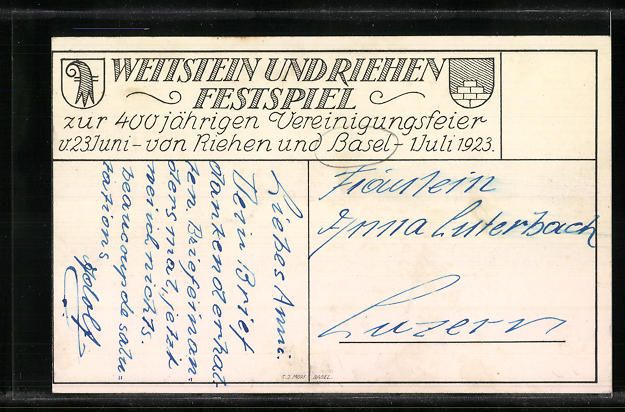 WETTSTEIN UND RIEHEN
FESTSPIEL
zur 400 jährigen Vereinigungsfeier
v. 23 Juni - von Riehen und Basel - 1 Juli 1923.
Liebes Anni.
Dein Brief
dankend erhal-
ten. Brief ein an-
deres mal, jetzt
nichts.
beaucoup de salu=
tations
Adolf
Fräulein
Anna Luterbach
Luzern
BASEL